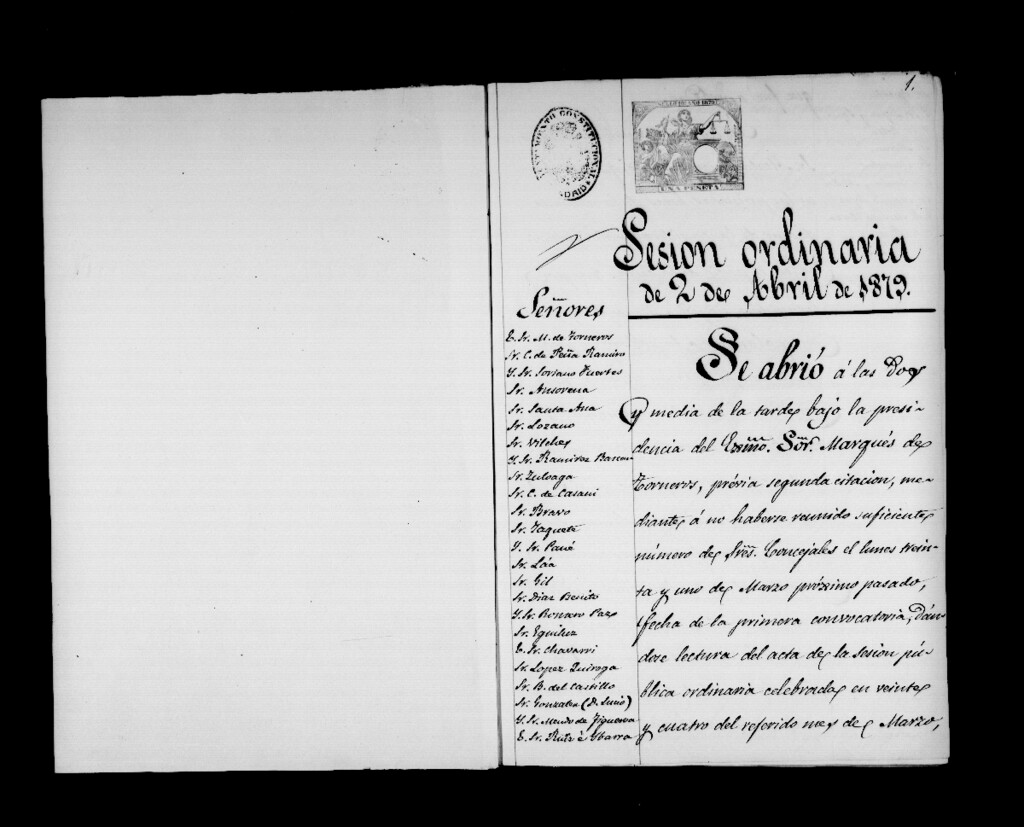 1.
AYUNTAMIENTO CONSTITUCIONAL
UNA PESETA
Sesion ordinaria
de 2 de Abril de 1879.
Señores
E. Sr. M. de Torneros
Sr. C. de Peña Ramiro
Y. Sr. Soriano Fuertes
Sr. Ansorena
Sr. Santa Ana
Sr. Lozano
Sr. Vilches
Y. Sr. Ramirez
Sr. Zuloaga
Sr. C. de Casani
Sr. Bravo
Sr. Jaquete
Y. Sr. Pané
Sr. Láa
Sr. Gil
Sr. Diaz Benito
Y. Sr. Bonaro Paz
Sr. Eguiluz
E. Sr. Chavarri
Sr. Lopez Quiroga
Sr. B. del Castillo
Sr. Gonzalez
Y. Sr. de Figueroa
E. Sr. Ruiz é Ybarra
Se abrió á las Dos
y media de la tarde bajo la presi-
dencia del Exmo. Sor. Marqués de
Torneros, prévia segunda citacion, me-
diante á no haberse reunido suficiente
número de Sres. Concejales el lunes trein-
ta y uno de Marzo próximo pasado,
fecha de la primera convocatoria, dán-
dose lectura del acta de la sesion pú-
blica ordinaria celebrada en veinte
y cuatro del referido mes de Marzo,